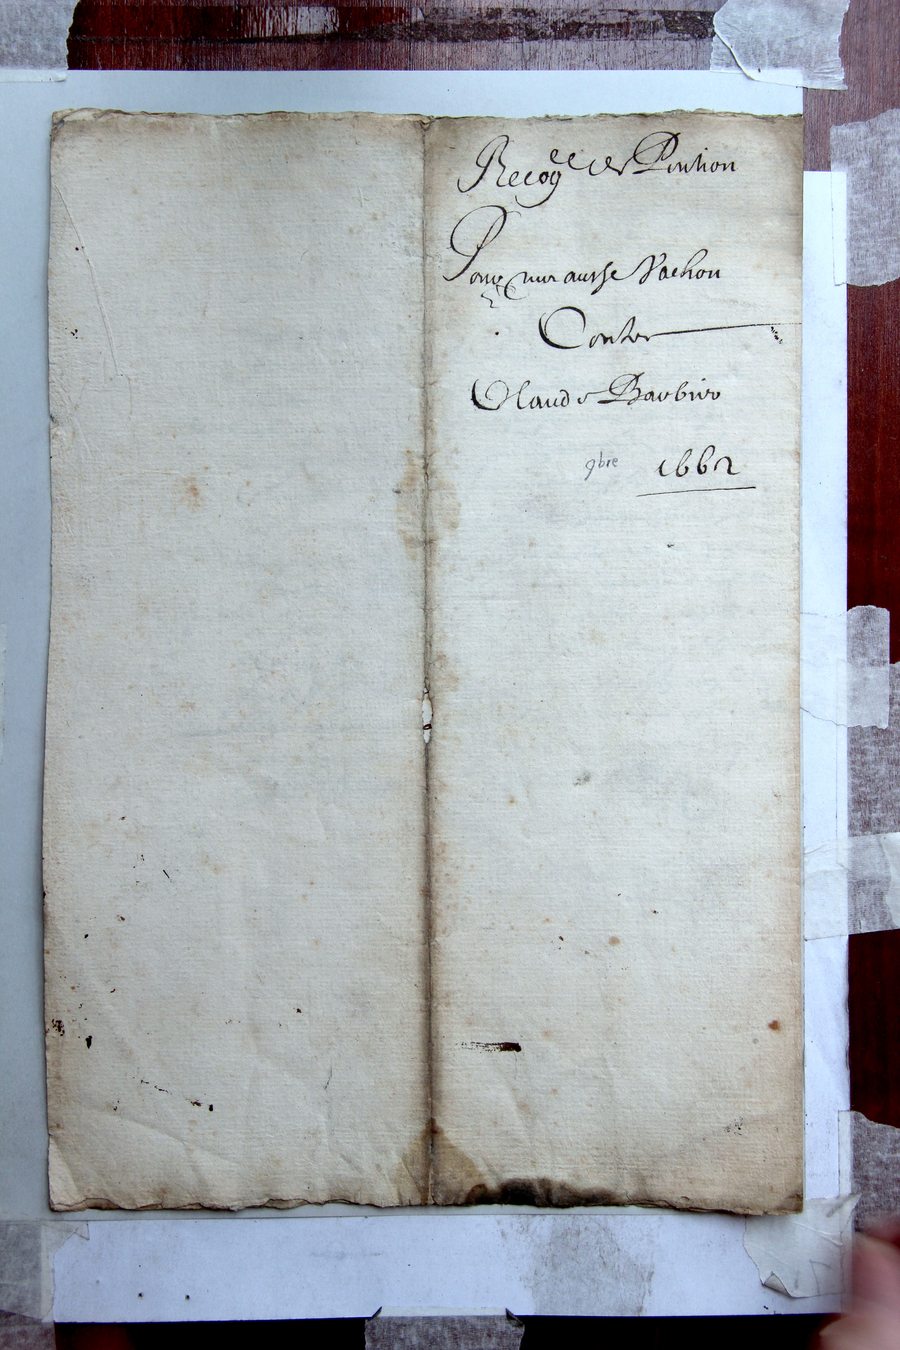 Recog^ee de Pontion
Pour Vachon
Contre
Claude Barbier
9bre 1662